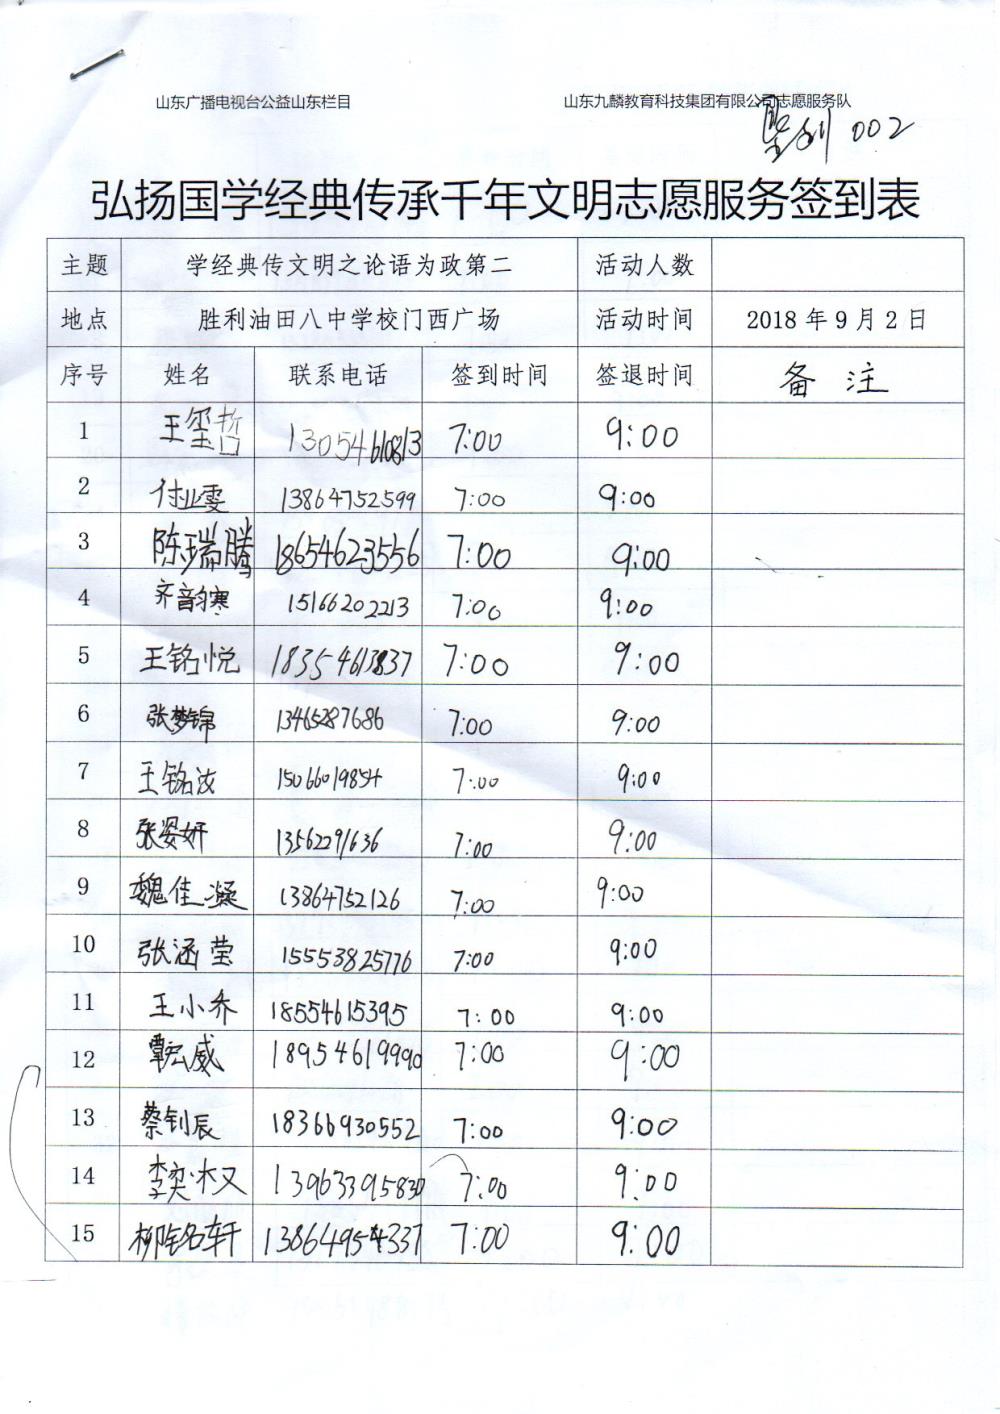 山东广播电视台公益山东栏目 山东九麟教育科技集团有限公司志愿服务队
002
弘扬国学经典传承千年文明志愿服务签到表
主题 学经典传文明之论语为政第二 活动人数
地点 胜利油田八中学校门西广场 活动时间 2018年9月2日
序号 姓名 联系电话 签到时间 签退时间 备注
1 王玺哲 13054610813 7:00 9:00
2 付业雯 13864752599 7:00 9:00
3 陈瑞腾 18654623556 7:00 9:00
4 齐韵寒 15166202213 7:00 9:00
5 王铭悦 18354613837 7:00 9:00
6 张梦锦 13465287686 7:00 9:00
7 王铭汝 15066019854 7:00 9:00
8 张姿妍 13562291636 7:00 9:00
9 魏佳凝 13864752126 7:00 9:00
10 张涵莹 15553825776 7:00 9:00
11 王小乔 18554615395 7:00 9:00
12 覃宏威 18954619990 7:00 9:00
13 蔡钊辰 18366930552 7:00 9:00
14 李奕权 13963395830 7:00 9:00
15 柳铭轩 13864954337 7:00 9:00